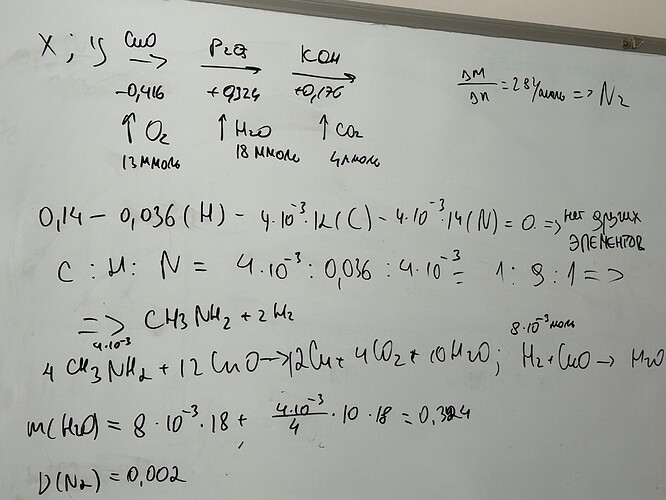 X ; Y CuO → P2O5 → KOH →
-0,416 +0,324 +0,176
↑ O2 ↑ H2O ↑ CO2
13 ммоль 18 ммоль 4 ммоль
ΔM/Δn = 28 г/моль => N2
0,14 - 0,036 (H) - 4·10^-3·12 (C) - 4·10^-3·14 (N) = 0. => нет других элементов
C : H : N = 4·10^-3 : 0,036 : 4·10^-3 = 1 : 9 : 1 =>
=> CH3NH2 + 2H2
4·10^-3 8·10^-3 моль
4 CH3NH2 + 12 CuO → 12Cu + 4CO2 + 10H2O ; H2 + CuO → H2O
m(H2O) = 8·10^-3·18 + 4·10^-3/4 · 10 · 18 = 0,324
ν(N2) = 0,002